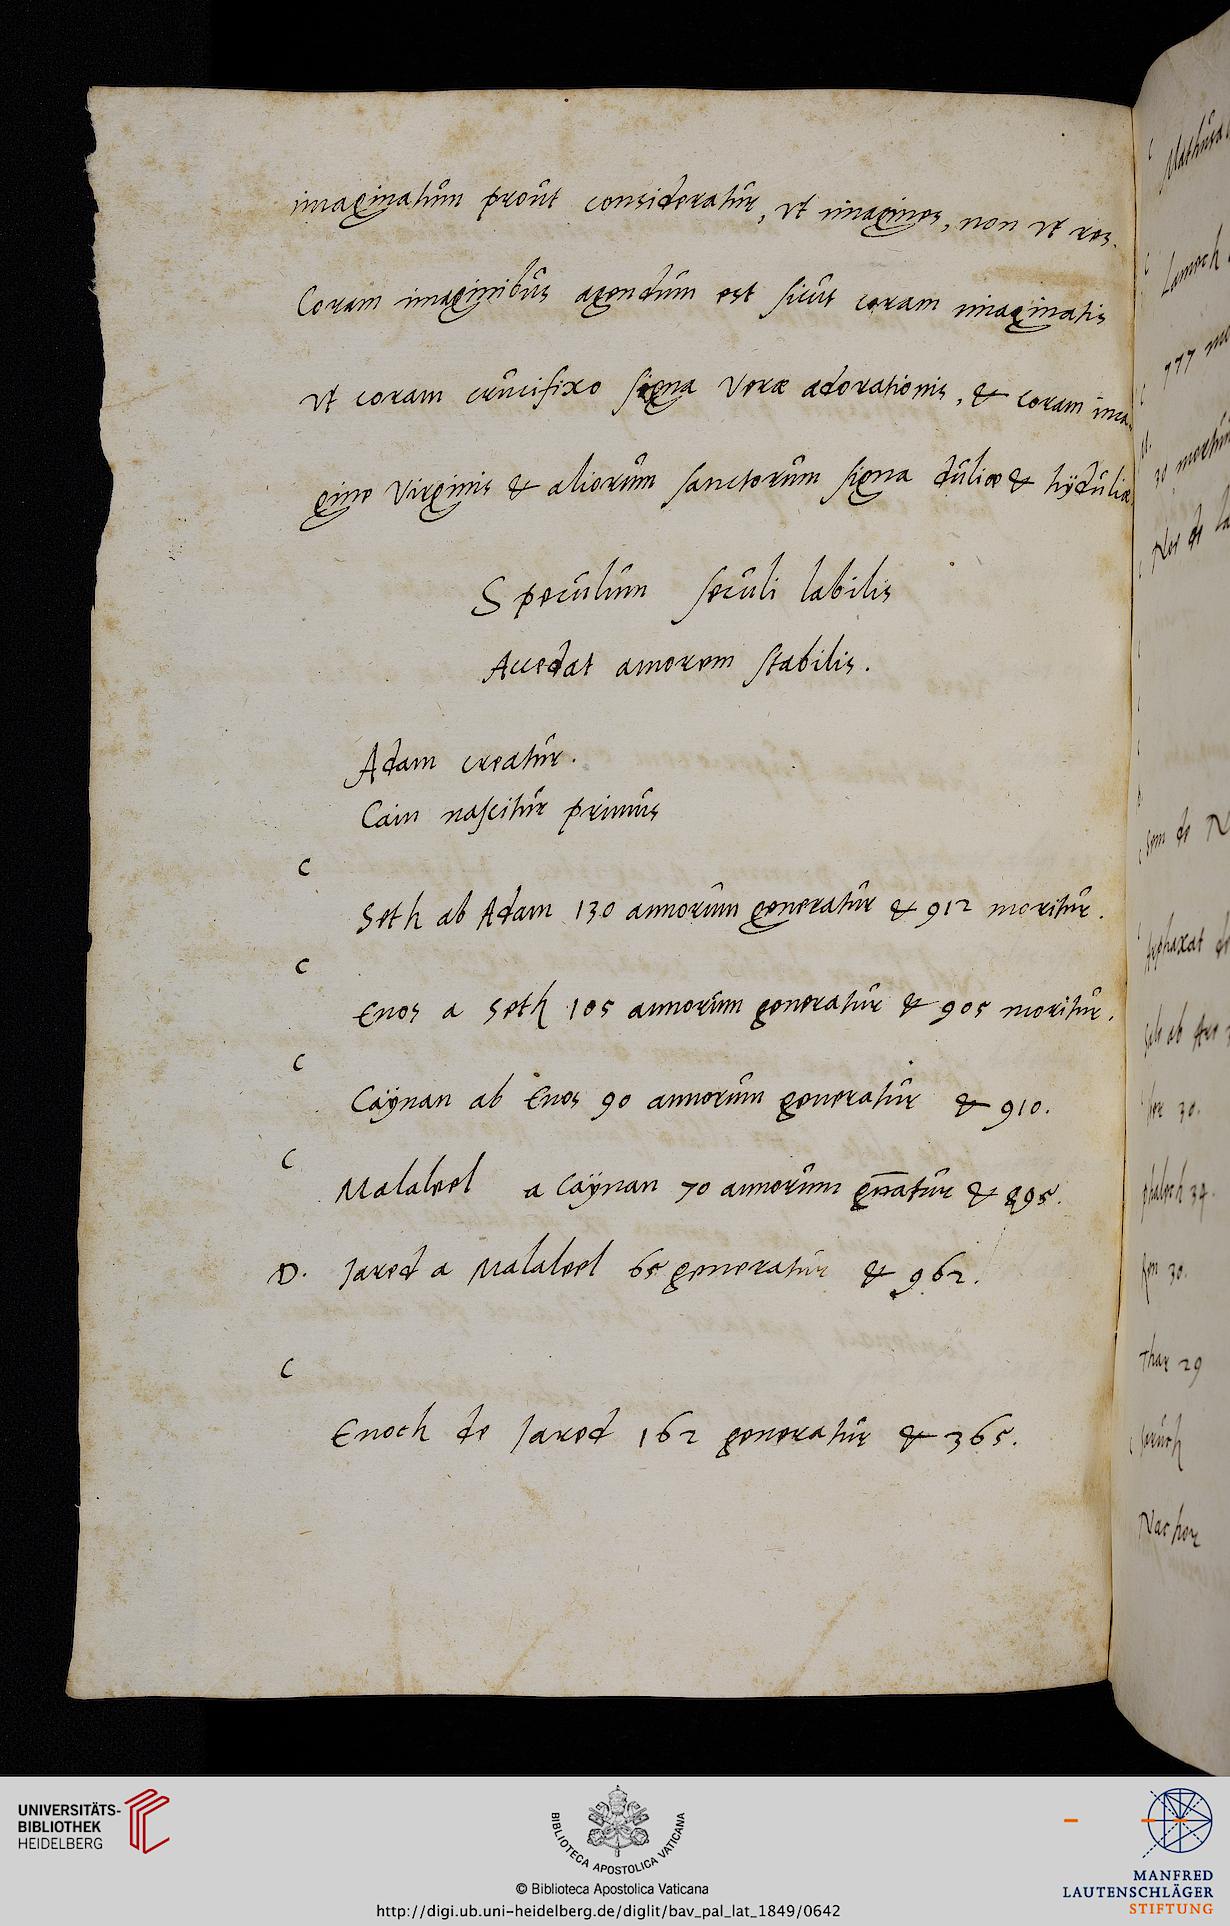 imaginatum prout consideratur, vt imagines, non vt res.
Coram imaginibus agendum est sicut coram imaginatis
vt coram crucifixo signa veræ adorationis, & coram ima
gine Virginis & aliorum sanctorum signa duliæ & hÿduliæ
Speculum seculi labilis
Accedat amorem stabilis.
Adam creatur.
Cain nascitur primus
C
Seth ab Adam 130 annorum generatur & 912 moritur.
C
Enos a Seth 105 annorum generatur & 905 moritur.
C
Caÿnan ab Enos 90 annorum generatur & 910.
C
Malaleel a Caÿnan 70 annorum gn̄atur & 895.
D. Jared a Malaleel 65 generatur & 962.
C
Enoch de Jared 162 generatur & 365.
Lamech
777
30
Noe de
Sem de
Arphaxat de
Sale ab
30.
phalech 34.
30.
Thar 29
Seruch
Nachor
UNIVERSITÄTS-
BIBLIOTHEK
HEIDELBERG
BIBLIOTECA APOSTOLICA VATICANA
© Biblioteca Apostolica Vaticana
http://digi.ub.uni-heidelberg.de/diglit/bav_pal_lat_1849/0642
MANFRED
LAUTENSCHLÄGER
STIFTUNG